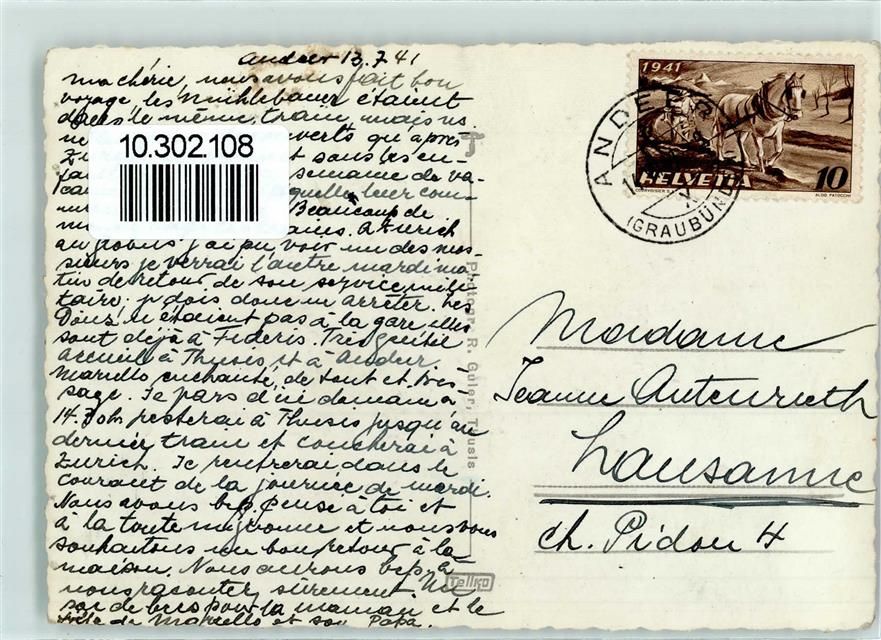 Andeer 13.7.41
ma chérie, nous avons fait bon
voyage, les Mühlebauer étaient
dans le même train, mais ns.
verts qu'après
10.302.108
t sans les en-
semaine de va-
aquelle leur com-
Beaucoup de
ains. A Zurich
au Globus j'ai pu voir un des mes-
sieurs je verrai l'autre mardi ma-
tin de retour de son service mili-
taire. je dois donc m'arrêter. Les
n'étaient pas à la gare elles
sont déjà à Fideris. Très gentil
accueil à Thusis et à Andeer
Marcello enchanté de tout et très
sage. Je pars d'ici demain à
14. resterai à Thusis jusqu'au
dernier train et coucherai à
Zurich. Je rentrerai dans le
courant de la journée de mardi.
Nous avons bcp. pensé à toi et
à la toute mignonne et nous vous
souhaitons un bon retour à la
maison. Nous aurons bcp. à
nous raconter, sûrement. Un
de bers pour la maman et le
de Marcello et son Papa.
Photogr. R. Guler, Thusis
Tellko
1941
HELVETIA
10
COURVOISIER S.A.
ALDO PATOCCHI
ANDEER
(GRAUBÜND
Madame
Jeanne Autenrieth
Lausanne
ch. Pidou 4